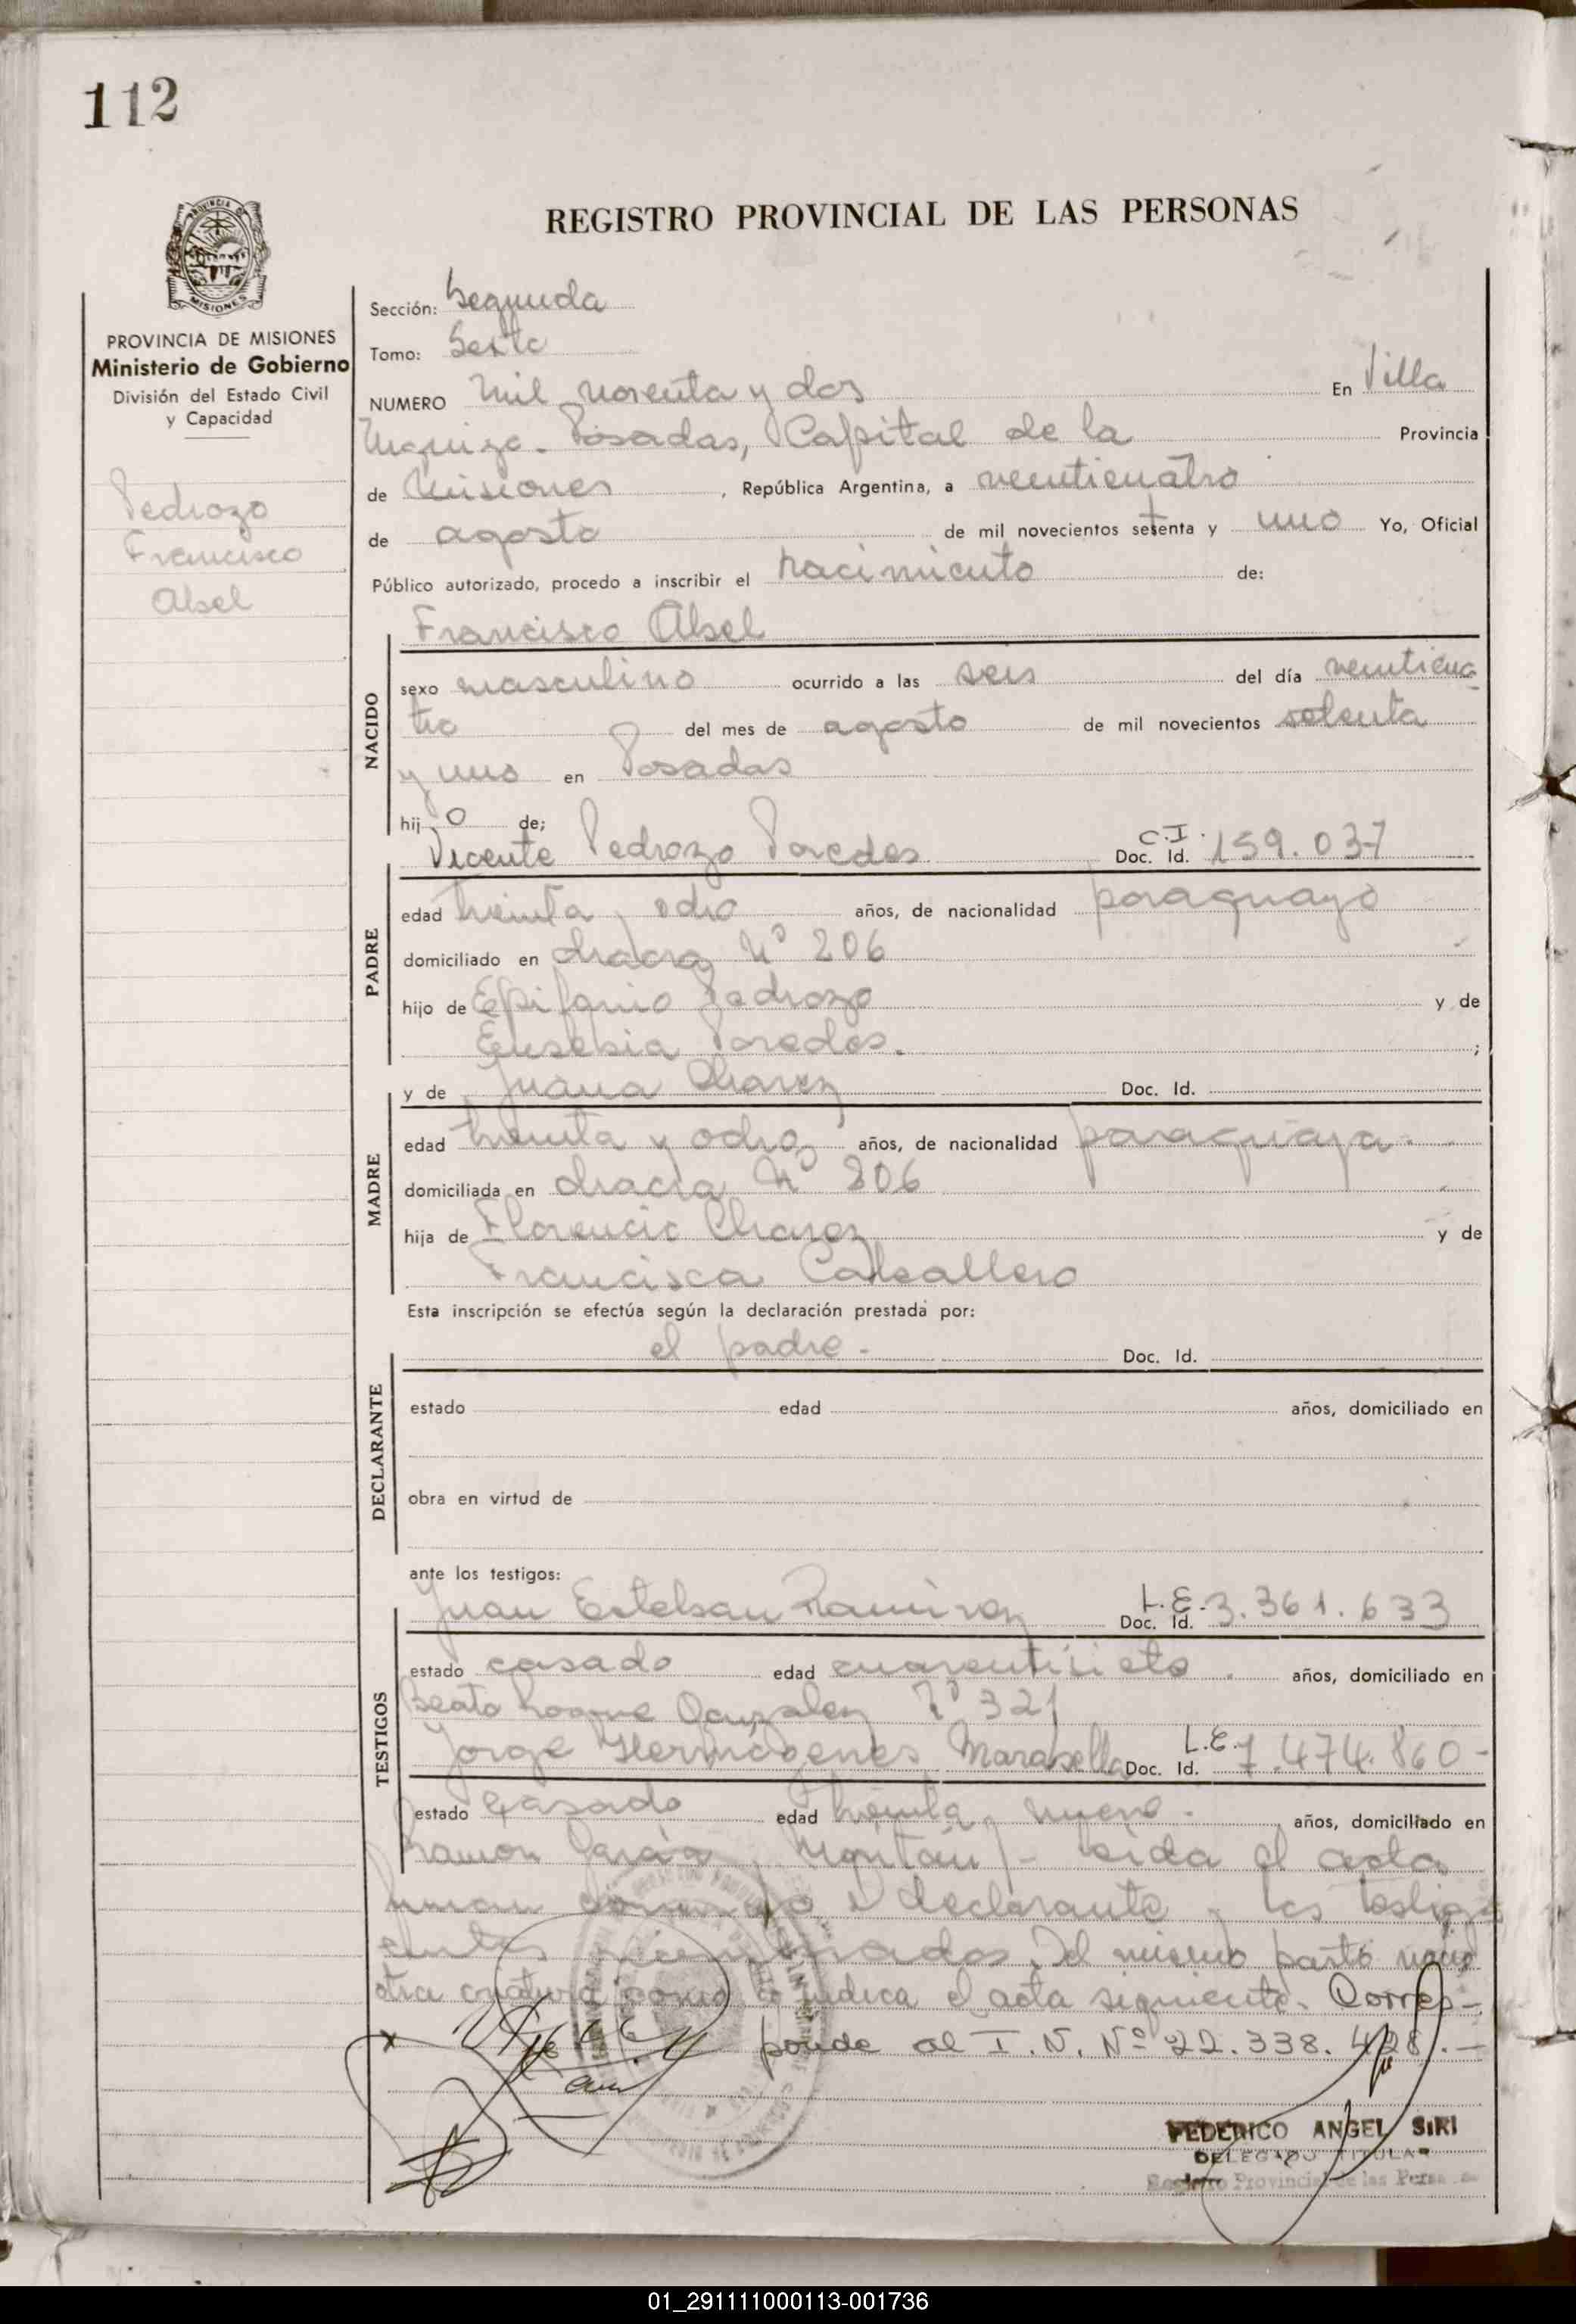 112
REGISTRO PROVINCIAL DE LAS PERSONAS
MISIONES
PROVINCIA DE MISIONES
Ministerio de Gobierno
División del Estado Civil
y Capacidad
Pedrozo
Francisco
Abel
Sección: Segunda
Tomo: Sexto
NUMERO mil noventa y dos En Villa
Urquiza - Posadas, Capital de la Provincia
de Misiones, República Argentina, a veinticuatro
de agosto de mil novecientos setenta y uno Yo, Oficial
Público autorizado, procedo a inscribir el nacimiento de:
Francisco Abel
NACIDO
sexo masculino ocurrido a las seis del día veinticua
tro del mes de agosto de mil novecientos setenta
y uno en Posadas
hijo de;
Vicente Pedrozo Paredes C.I. Doc. Id. 159.037
PADRE
edad treinta y ocho años, de nacionalidad paraguayo
domiciliado en chacra Nº 206
hijo de Epifanio Pedrozo y de
Eusebia Paredes. ;
y de Juana Chavez Doc. Id.
MADRE
edad treinta y ocho años, de nacionalidad paraguaya.
domiciliada en chacra Nº 206
hija de Florencio Chavez y de
Francisca Caballero
Esta inscripción se efectúa según la declaración prestada por:
el padre - Doc. Id.
DECLARANTE
estado edad años, domiciliado en
obra en virtud de
ante los testigos:
Juan Esteban Ramirez L.E. Doc. Id. 3.361.633
TESTIGOS
estado casado edad cuarentisiete años, domiciliado en
Beato Roque Gonzalez Nº 321
Jorge Hermógenes Marasella L.E. Doc. Id. 7.474.860-
estado casado edad treinta y nueve. años, domiciliado en
Ramon García y - Leida el acta
firman conmigo el declarante y los testigos
antes mencionados. Del mismo parto nació
otra criatura como lo indica el acta siguiente. Corres-
ponde al I.N. Nº 22.338.428.-
FEDERICO ANGEL SIRI
DELEGADO TITULAR
Registro Provincial de las Personas
01_291111000113-001736